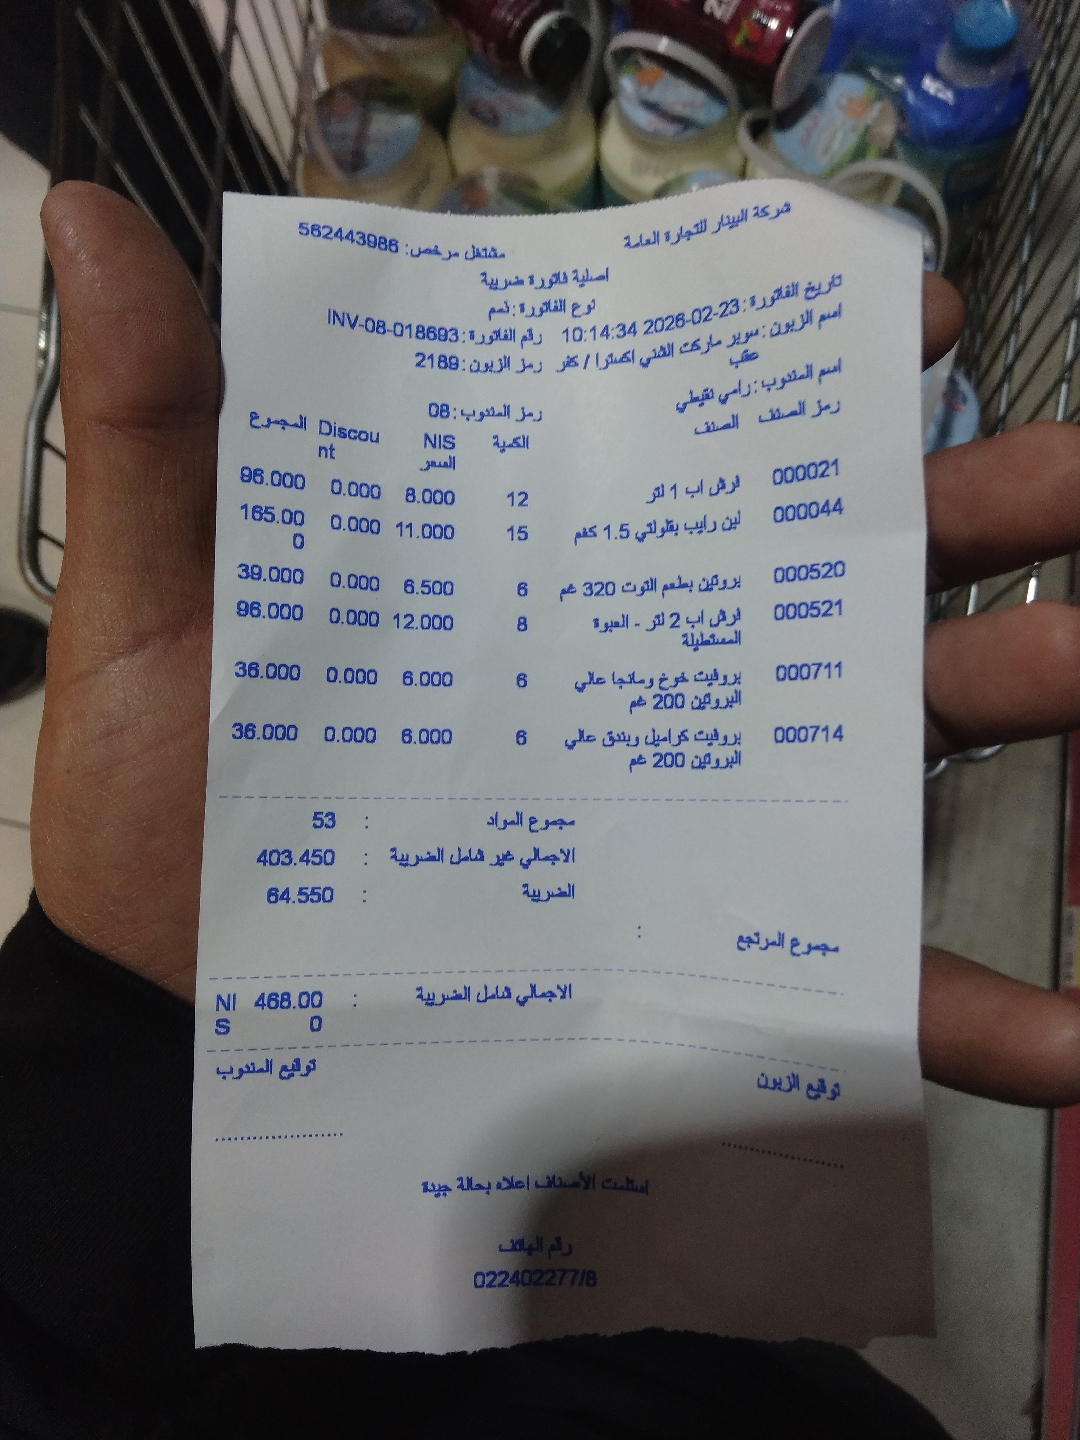 شركة البينار للتجارة العامة
مشتغل مرخص: 562443986
اصلية فاتورة ضريبة
نوع الفاتورة: ذمم
تاريخ الفاتورة: 2026-02-23 10:14:34 رقم الفاتورة: INV-08-018693
اسم الزبون: سوبر ماركت الشني اكسترا / كفر عقب
رمز الزبون: 2189
اسم المندوب: رامي نقيطي
رمز المندوب: 08
رمز الصنف الصنف الكمية NIS السعر Discount المجموع
000021 فرش اب 1 لتر 12 8.000 0.000 96.000
000044 لبن رايب بقلولتي 1.5 كغم 15 11.000 0.000 165.000
000520 بروتين بطعم التوت 320 غم 6 6.500 0.000 39.000
000521 فرش اب 2 لتر - العبوة المستطيلة 8 12.000 0.000 96.000
000711 بروفيت خوخ ومانجا عالي البروتين 200 غم 6 6.000 0.000 36.000
000714 بروفيت كراميل وبندق عالي البروتين 200 غم 6 6.000 0.000 36.000
مجموع المواد : 53
الاجمالي غير شامل الضريبة : 403.450
الضريبة : 64.550
مجموع المرتجع :
الاجمالي شامل الضريبة : 468.000 NIS
توقيع الزبون توقيع المندوب
استلمت الأصناف اعلاه بحالة جيدة
رقم الهاتف
022402277/8